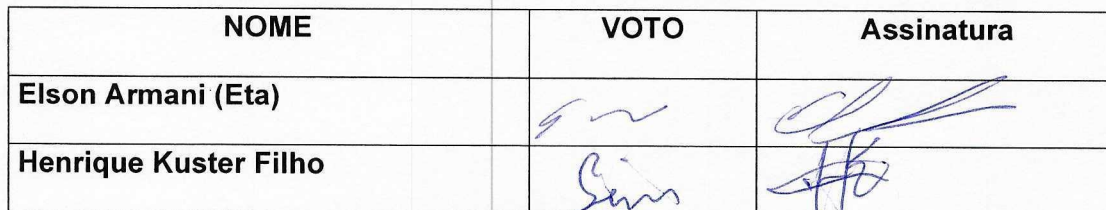 NOME VOTO Assinatura
Elson Armani (Eta)
Henrique Kuster Filho Sim